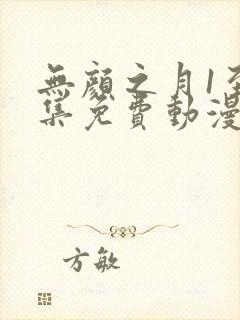 無顏之月1至
集免費動漫
方敏